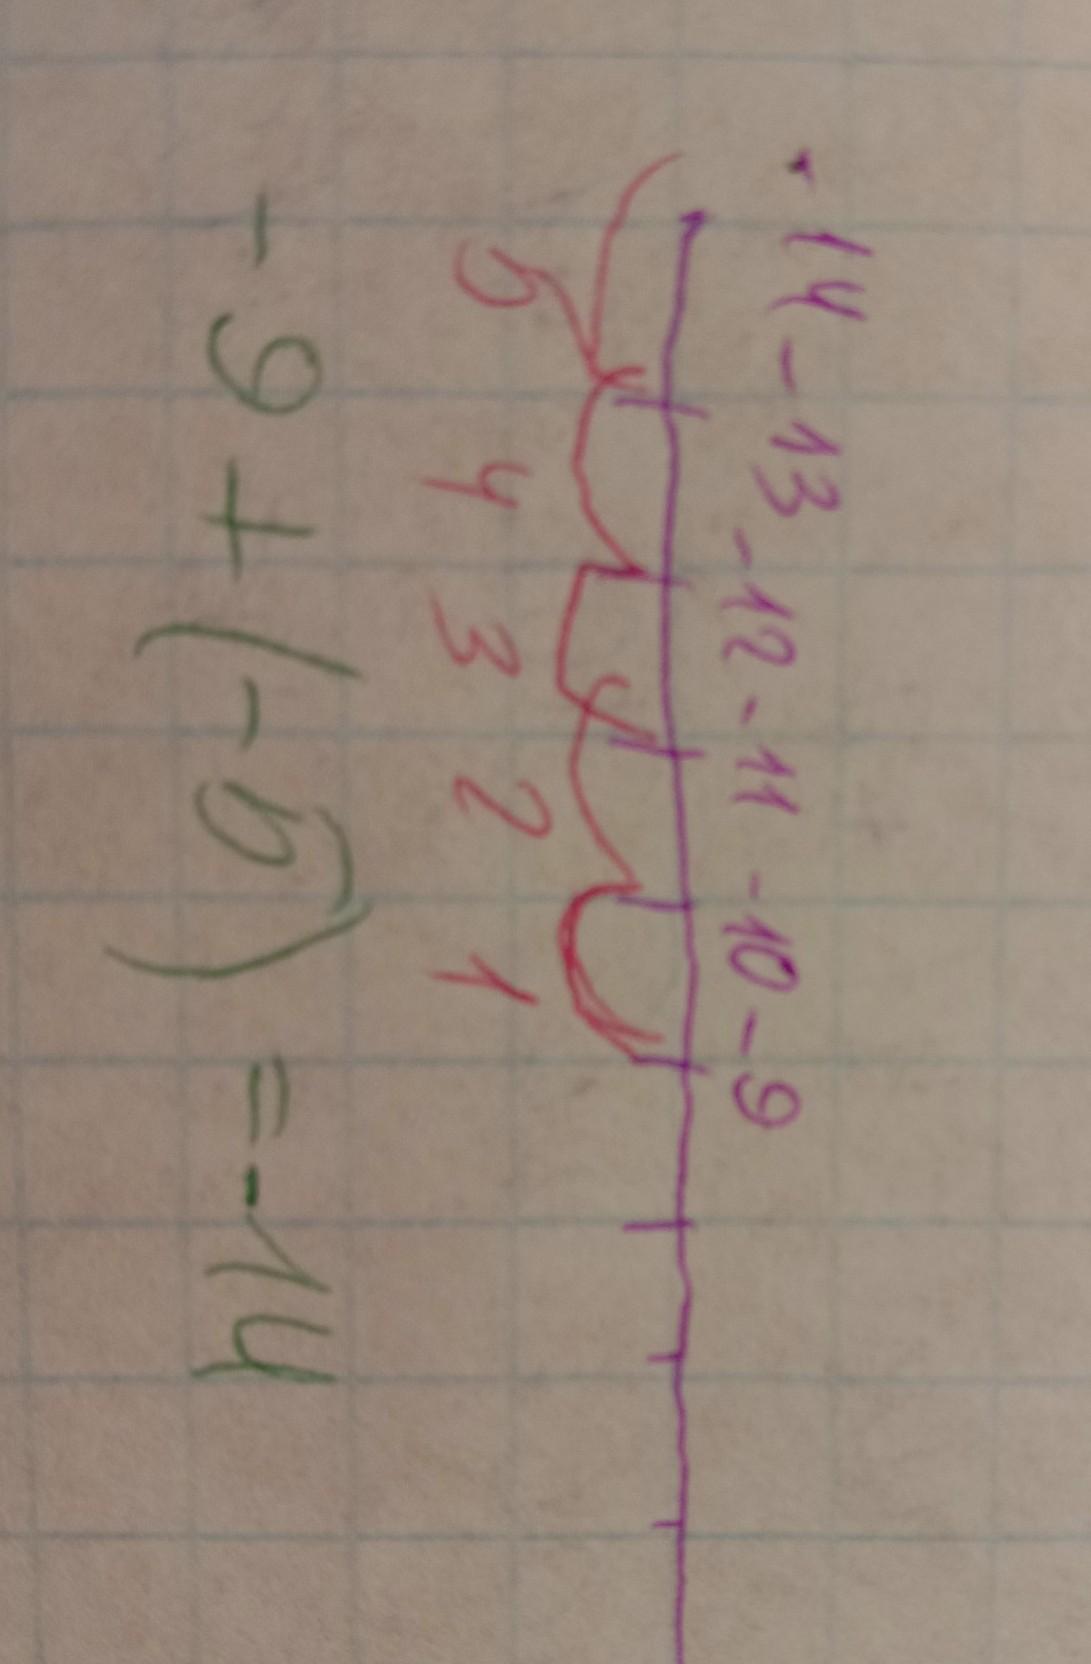 -14 -13 -12 -11 -10 -9
5 4 3 2 1
-9 + (-5) = -14